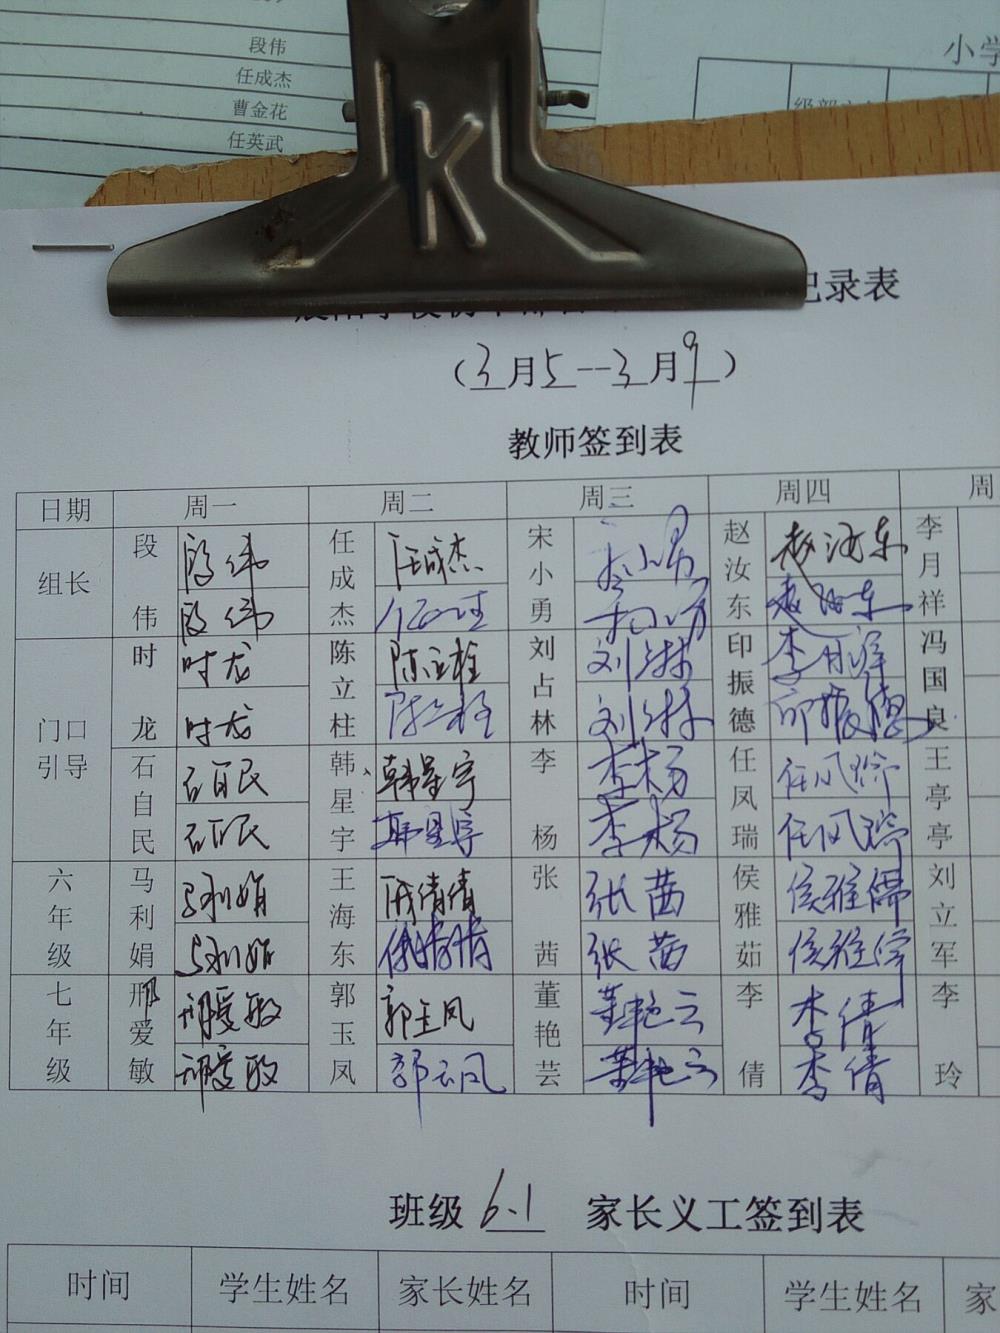 段伟
任成杰
曹金花
任英武
小学
K
记录表
(3月5--3月9)
教师签到表
日期 周一 周二 周三 周四 周
组长 段伟 段伟 任成杰 任成杰 宋小勇 赵汝东 赵汝东 李月祥
段伟
门口引导 时龙 时龙 陈立柱 陈立柱 刘占林 刘占林 印振德 李月祥 冯国良
时龙 陈立柱 刘占林 印振德
石自民 石自民 韩星宇 韩星宇 李杨 李杨 任凤瑞 任凤瑞 王亭亭
石自民 韩星宇 李杨 任凤瑞
六年级 马利娟 马利娟 王海东 张茜 张茜 侯雅茹 侯雅茹 刘立军
马利娟 张茜
七年级 邢爱敏 邢爱敏 郭玉凤 郭玉凤 董艳芸 董艳云 李倩 李倩 李玲
邢爱敏 郭玉凤 董艳云 李倩
班级 6.1 家长义工签到表
时间 学生姓名 家长姓名 时间 学生姓名 家